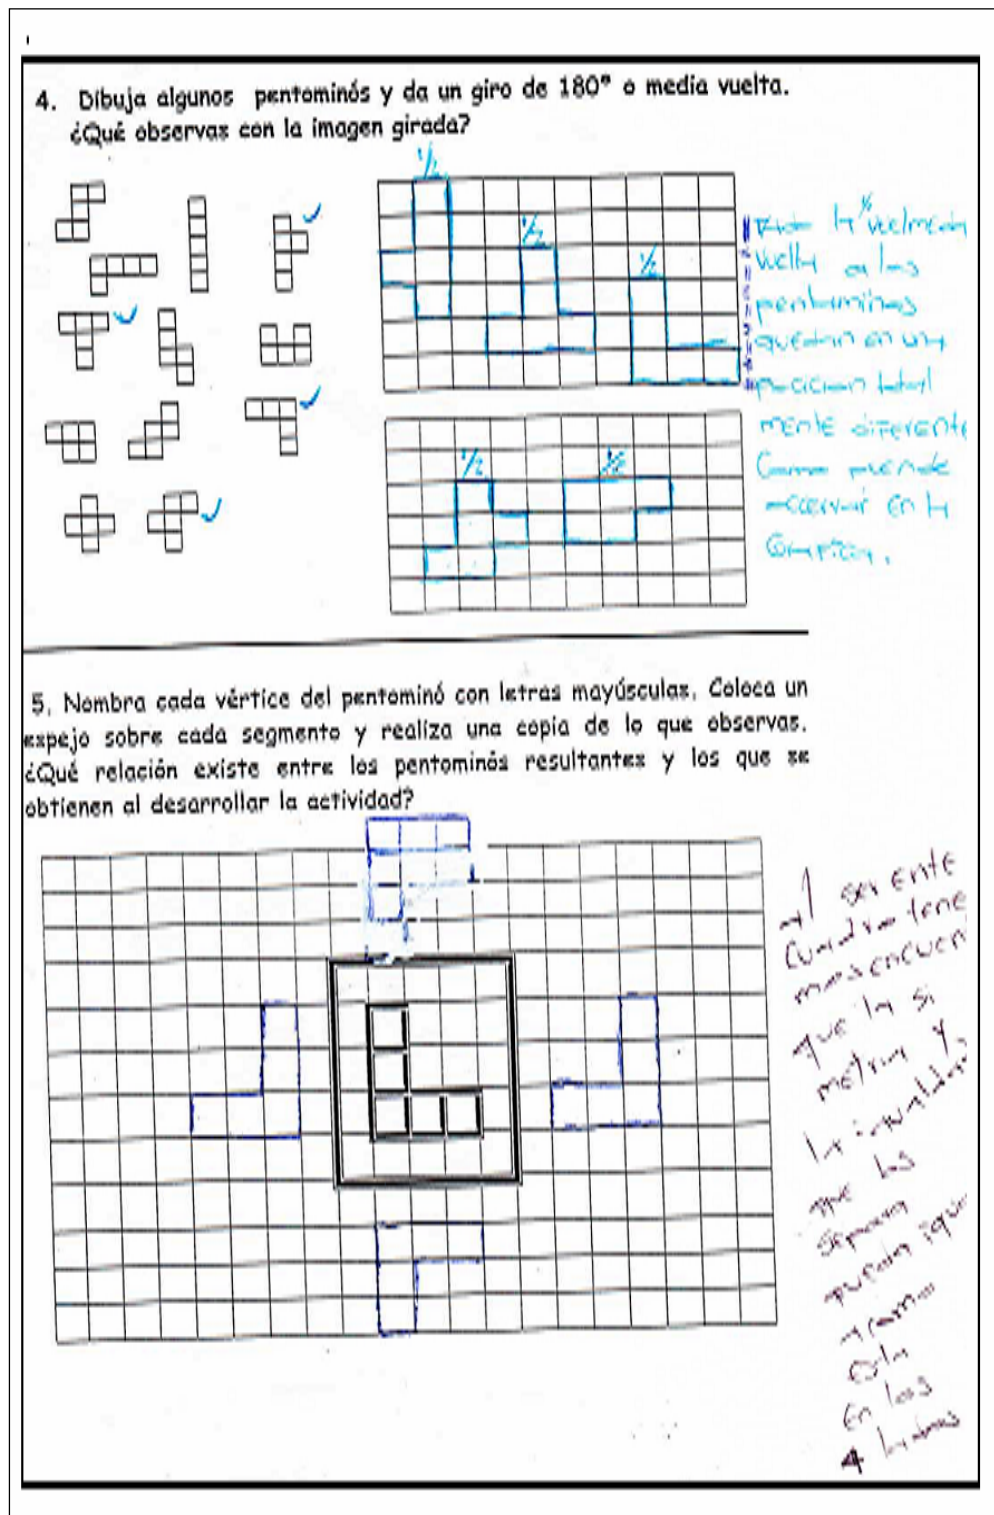 4. Dibuja algunos pentominós y da un giro de 180° o media vuelta.
¿Qué observas con la imagen girada?
1/2
1/2
1/2
1/2
1/2
vuelta a las
pentominos
quedan en un
posicion total
mente diferente
Como puende
en la
5. Nombra cada vértice del pentominó con letras mayúsculas. Coloca un
espejo sobre cada segmento y realiza una copia de lo que observas.
¿Qué relación existe entre los pentominós resultantes y los que se
obtienen al desarrollar la actividad?
al ser ente
Cuadro tene
mos encuen
que la si
metria y
la
que los
separan
quedan igua
como
esta
En los
4 lados